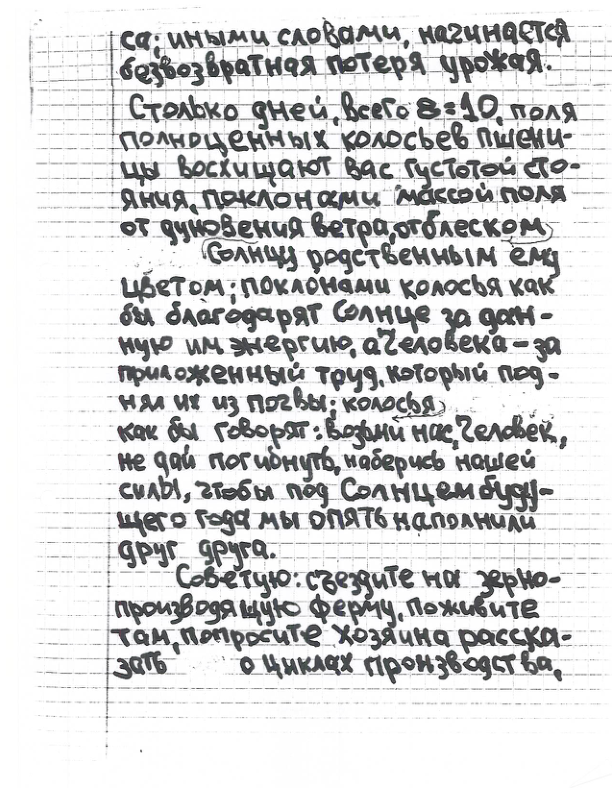 са; иными словами, начинается
безвозвратная потеря урожая.
Столько дней, всего 8÷10, поля
полноценных колосьев пшени-
цы восхищают вас густотой сто-
яния, поклонами массой поля
от дуновения ветра, отблеском
Солнцу родственным ему
цветом; поклонами колосья как
бы благодарят Солнце за дан-
ную им энергию, а Человека – за
приложенный труд, который под-
нял их из почвы; колосья
как бы говорят: возьми нас, Человек,
не дай погибнуть, наберись нашей
силы, чтобы под Солнцем буду-
щего года мы опять наполнили
друг друга.
Советую: съездите на зерно-
производящую ферму, поживите
там, попросите хозяина расска-
зать о циклах производства,